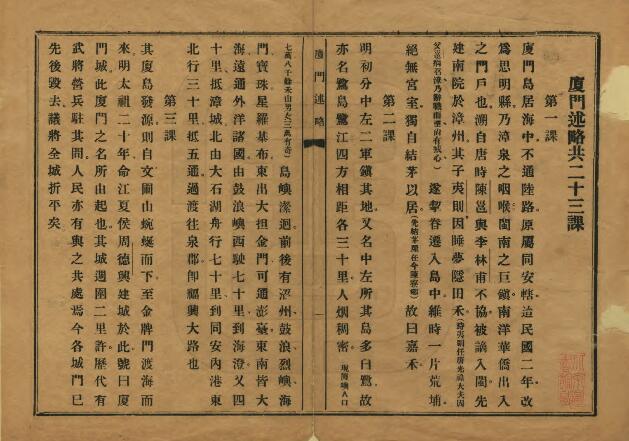 廈門述略共二十三課
第一課
廈門島居海中不通陸路原屬同安轄迨民國二年改
爲思明縣乃漳泉之咽喉閩南之巨鎭南洋華僑出入
之門戶也溯自唐時陳邕與李林甫不協被謫入閩先
建南院於漳州其子夷則因睡夢隱田禾
遂挈眷遷入島中維時一片荒埔
絕無宮室獨自結茅以居故曰嘉禾
第二課
明初分中左二軍鎭其地又名中左所其島多白鷺故
亦名鷺島鷺江四方相距各三十里人烟稠密
島嶼瀠迴前後有浯州鼓浪烈嶼海
門寶珠星羅棊布東出大担金門可通澎臺東南皆大
海遠通外洋諸國由鼓浪嶼西駛七十里到海澄又四
十里抵漳城北由大石湖舟行七十里到同安內港東
北行三十里抵五通過渡往泉郡卽福興大路也
第三課
其廈島發源則自文圃山蜿蜒而下至金牌門渡海而
來明太祖二十年命江夏侯周德興建城於此號曰廈
門城此廈門之名所由起也其城週圍二里許歷代有
武將營兵駐其間人民亦有與之共處焉今各城門已
先後毀去議將全城折平矣
廈門述略
一